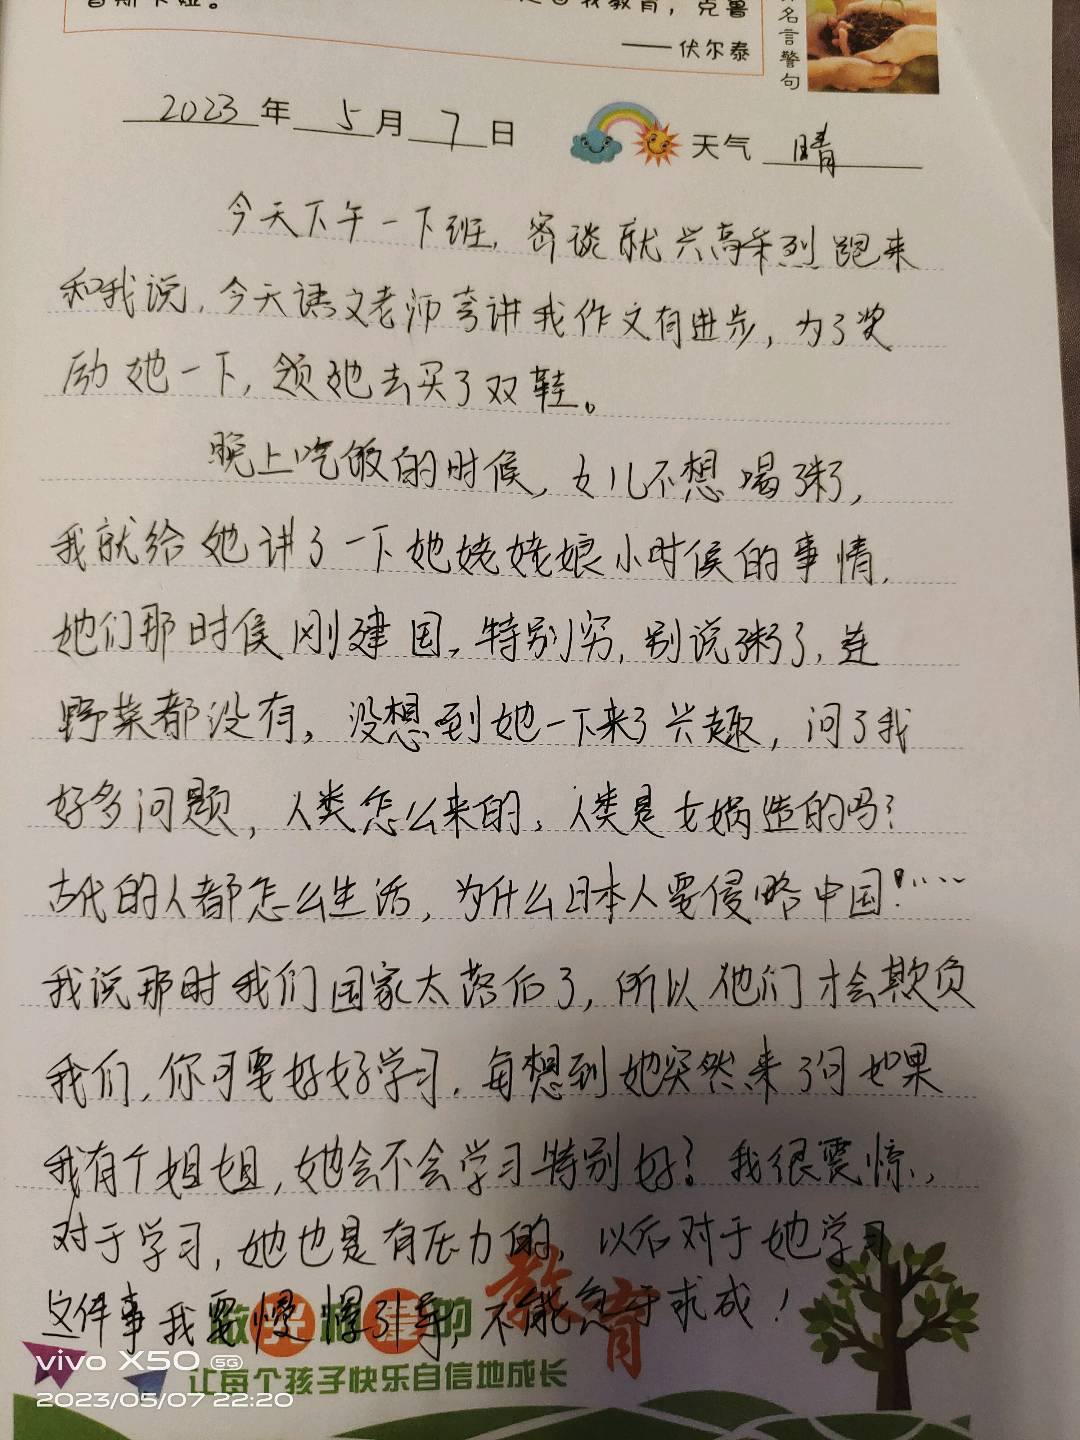 是自我教育，克鲁
——伏尔泰
名言警句
2023年5月7日 天气 晴
今天下午一下班，密谈就兴高采烈跑来
和我说，今天语文老师夸讲我作文有进步，为了奖
励她一下，领她去买了双鞋。
晚上吃饭的时候，女儿不想喝粥，
我就给她讲了一下她姥姥娘小时候的事情，
她们那时候刚建国，特别穷，别说粥了，连
野菜都没有，没想到她一下来了兴趣，问了我
好多问题，人类怎么来的，人类是女娲造的吗？
古代的人都怎么生活，为什么日本人要侵略中国！……
我说那时我们国家太落后了，所以他们才会欺负
我们，你可要好好学习，每想到她突然来了句如果
我有个姐姐，她会不会学习特别好？我很震惊，
对于学习，她也是有压力的，以后对于她学习
这件事我要慢慢引导，不能急于求成！
教育
让每个孩子快乐自信地成长
vivo X50 5G
2023/05/07 22:20